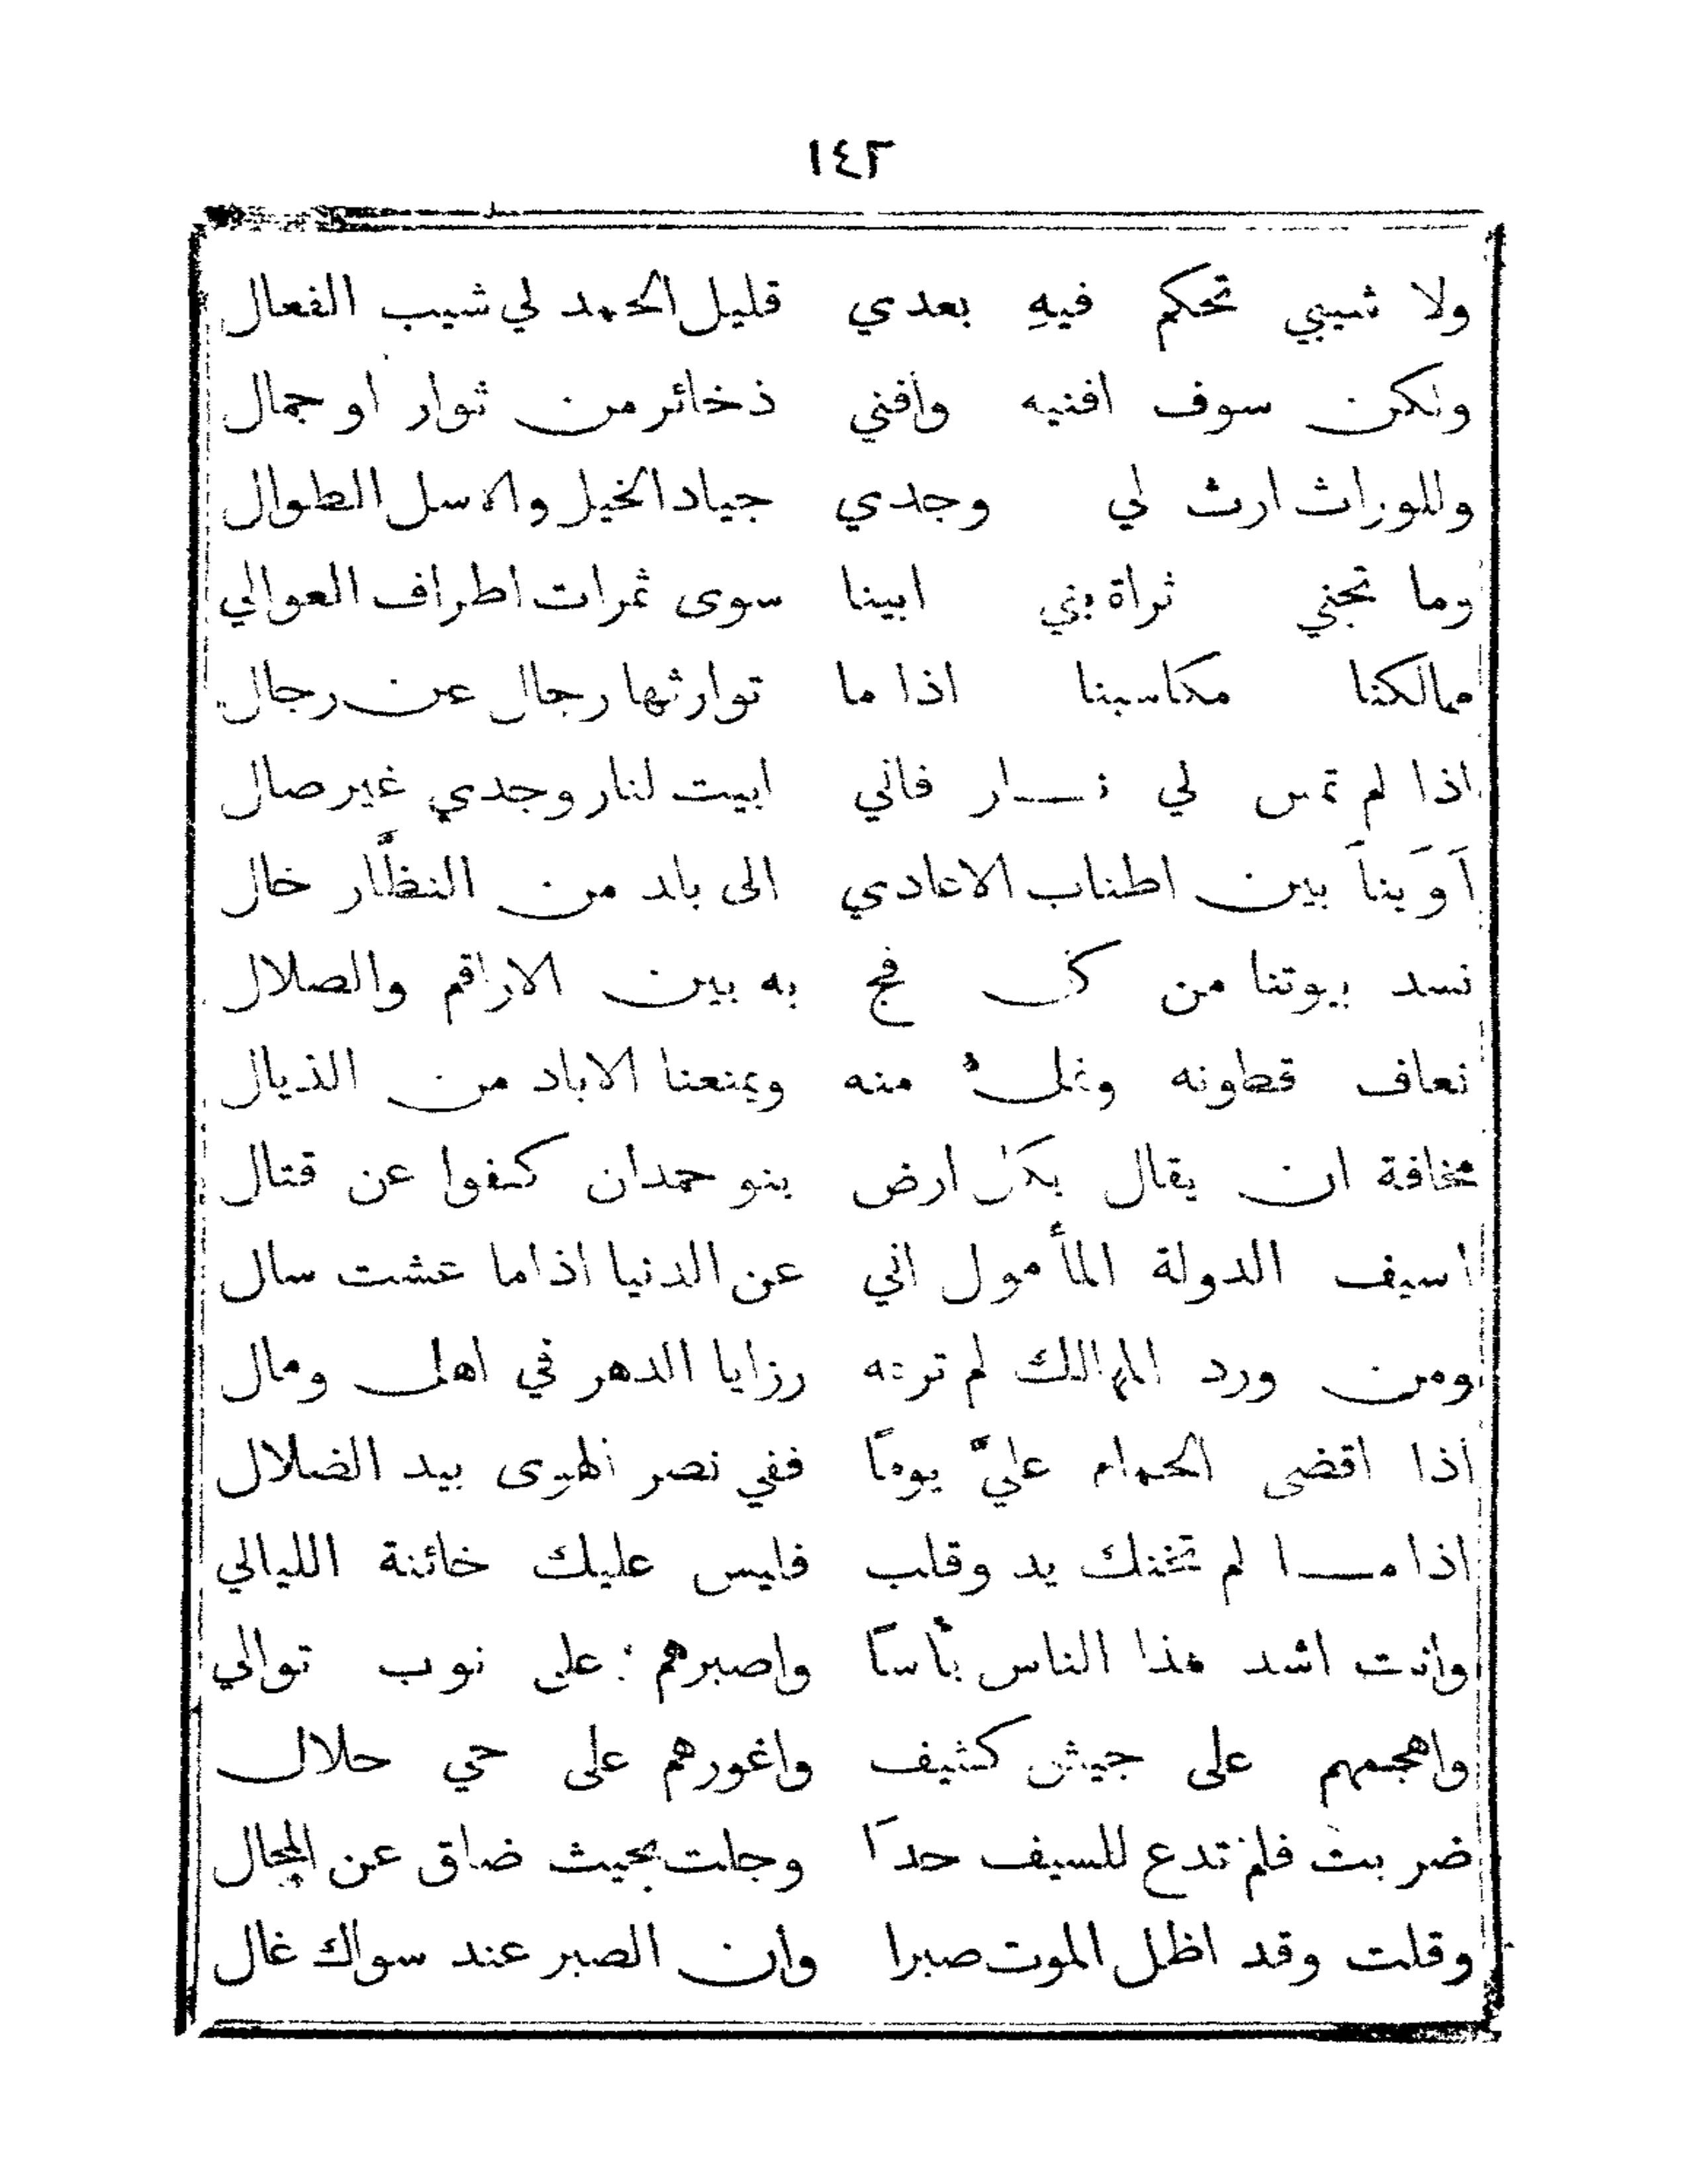 ١٤٢
ولا شيبي تحكم فيهِ بعدي قليل الحمد لي شيب الفعال
ولكن سوف افنيه وأفني ذخائر من ثوار او جمال
وللوراث ارث لي وجدي جياد الخيل والاسل الطوال
وما تجني ثراة بني ابينا سوى ثمرات اطراف العوالي
ممالكنا مكاسبنا اذا ما توارثها رجال عن رجال
اذا لم تمس لي نار فاني ابيت لنار وجدي غير صال
آوَيناَ بين اطناب الاعادي الى بلد من النظَّار خال
نسد بيوتنا من كل فج به بين الاراقم والصلال
نعاف قطونه ونملُّ منه ويمنعنا الاباد من الذيال
مخافة ان يقال بكل ارض بنو حمدان كفوا عن قتال
اسيف الدولة المأمول اني عن الدنيا اذا ما عشت سال
ومن ورد المهالك لم ترعه رزايا الدهر في اهل ومال
أذا اقضى الحمام عليَّ يوماً ففي نصر الهدى بيد الضلال
اذا ما لم تخنك يد وقلب فليس عليك خائنة الليالي
وانت اشد هذا الناس بأساً واصبرهم على نوب توالي
واهجمهم على جيش كثيف واغورهم على حي حلال
ضربت فلم تدع للسيف حداً وجلت بحيث ضاق عن المجال
وقلت وقد اظل الموت صبرا وأن الصبر عند سواك غال